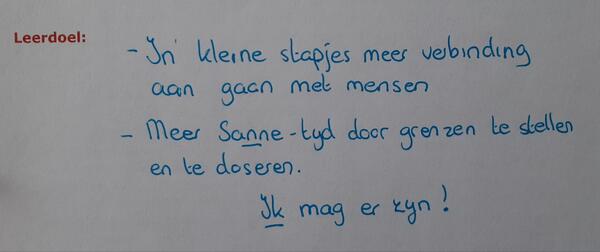 Leerdoel:
- In kleine stapjes meer verbinding
aan gaan met mensen
- Meer Sanne-tyd door grenzen te stellen
en te doseren.
Ik mag er zyn!